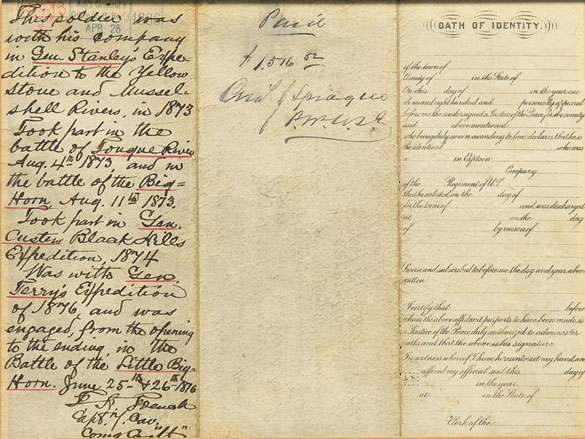 1873
APR 26
This soldier was
with his company
in Gen. Stanley's Expe-
dition to the Yellow
stone and Mussel-
shell Rivers, in 1873
Took part in the
battle of Tongue River
Aug. 4th 1873 and in
the battle of the Big-
Horn, Aug. 11th 1873.
Took part in Gen.
Custer's Black Hills
Expedition, 1874
Was with Gen.
Terry's Expedition
of 1876, and was
engaged, from the opening
to the ending, in the
Battle of the Little Big-
Horn. June 25-th & 26th 1876
French
Capt. 7 Cav.
Paid
$1,516
OATH OF IDENTITY.
of the town of
County of in the State of
On this day of in the year one
thousand eight hundred and personally appeared
before me, the undersigned a Justice of the Peace, for the county
and above mentioned
who being duly sworn according to law, declares that he is
the identical who was
in Captain
Company
of the Regiment of U.S.
that he enlisted on the day of
for the term of and was discharged
at on the day
of by reason of
Sworn and subscribed to before me the day and year above
written.
I certify that before
whom the above affidavit purports to have been made, is
a Justice of the Peace, duly authorized to administer
oaths and that the above is his signature
In witness whereof, I have hereunto set my hand, and
affixed my official seal this day of
in the year
at in the State of
Clerk of the